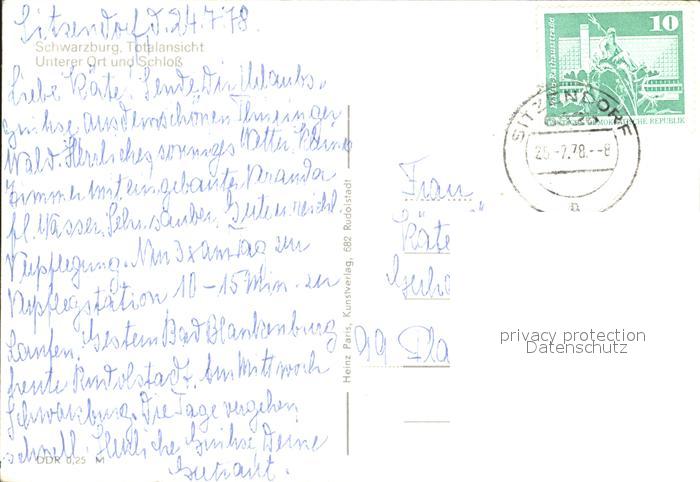 Sitzendorf d. 24.7.78.
Schwarzburg, Totalansicht
Unterer Ort und Schloß
Liebe Käte! Sende Dir Urlaubs-
grüße aus dem schönen Thüringer
Wald. Herrliches sonniges Wetter.
Zimmer mit eingebauter Veranda
fl. Wasser. Sehr sauber. Gute u. reichl.
Verpflegung. Nur 3 x am Tag zur
Verpflegstation 10-15 Min. zu
Laufen. Gestern Bad Blankenburg
heute Rudolstadt. Am Mittwoch
Schwarzburg. Die Tage vergehen
schnell. Herzliche Grüße Deine
Gertraut.
DDR 0,25 M
Heinz Paris, Kunstverlag, 682 Rudolstadt
10
DEMOKRATISCHE REPUBLIK
SITZENDORF
25.-7.78.--8
a
Frau
Käte
99 Pla
privacy protection
Datenschutz